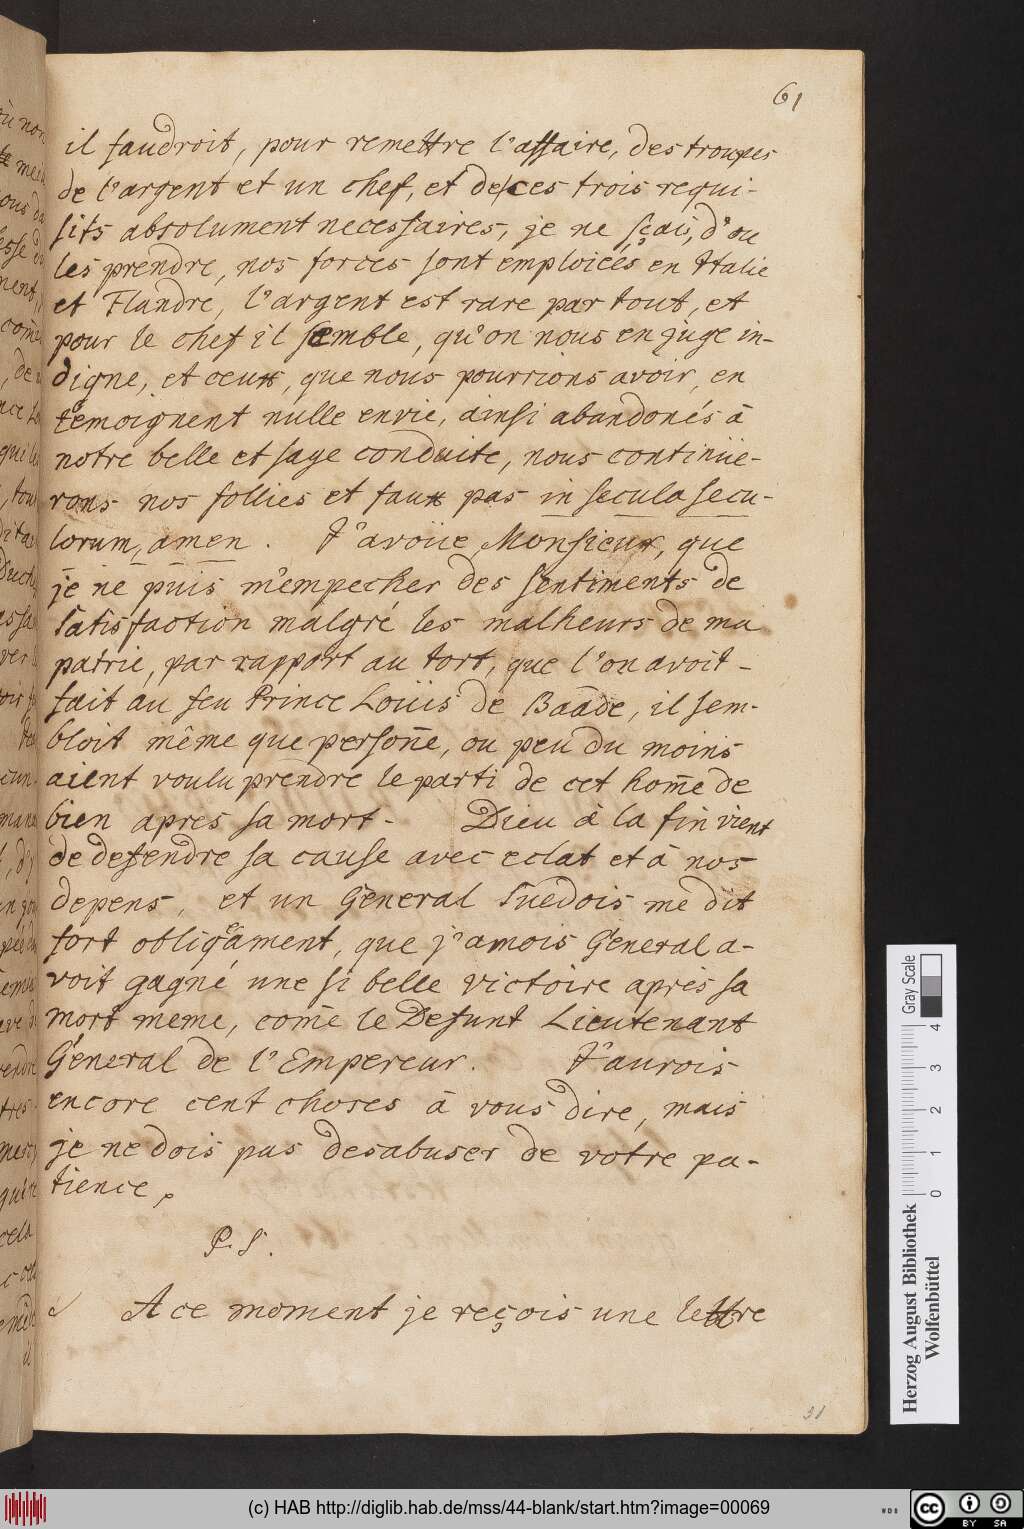 61
il faudroit, pour remettre l'affaire, des troupes
de l'argent et un chef, et de ces trois requi-
sits absolument necessaires, je ne sçais, d'ou
les prendre, nos forces sont emploieés en Italie
et Flandre, l'argent est rare par tout, et
pour le chef il semble, qu'on nous en juge in-
digne, et ceux, que nous pourrions avoir, en
temoignent nulle envie, ainsi abandonés à
notre belle et sage conduite, nous continüe-
rons nos follies et faux pas in secula secu-
lorum, amen. J'avoüe Monsieur, que
je ne puis m'empecher des sentiments de
satisfaction malgré les malheurs de ma
patrie, par rapport au tort, que l'on avoit-
fait au feu Prince Loüis de Baade, il sem-
bloit même que persone̅, ou peu du moins
aient voulu prendre le parti de cet hom̅e de
bien apres sa mort - Dieu à la fin vient
de defendre sa cause avec eclat et à nos
depens, et un General Suedois me dit
fort obligeament, que j'amois General a-
voit gagné une si belle victoire aprés sa
mort meme, com̅e le Defunt Lieutenant
General de l'Empereur. J'aurois
encore cent choses à vous dire, mais
je ne dois pas desabuser de votre pa-
tience.
P. S.
A ce moment je reçois une lettre
31
Herzog August Bibliothek
Wolfenbüttel
0 1 2 3 4
Gray Scale
(c) HAB http://diglib.hab.de/mss/44-blank/start.htm?image=00069
cc BY SA